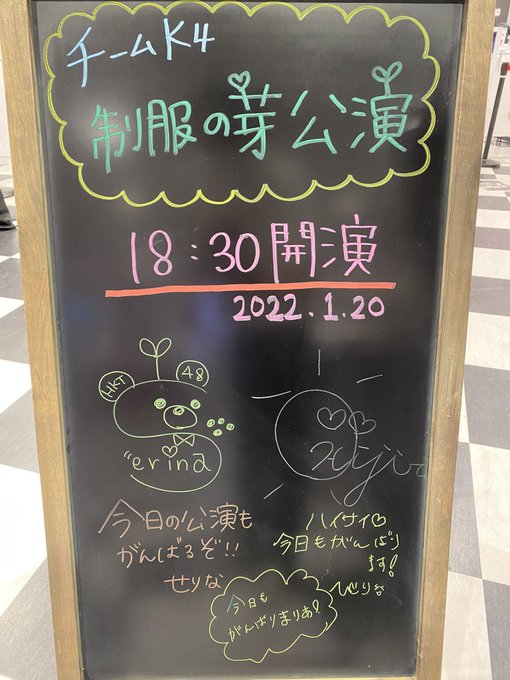 チームK4
制服の芽公演
18:30開演
2022.1.20
HKT 48
"erina
今日の公演も
がんばるぞ!!
せりな
ハイサイ♡
今日もがんばり
ます!
ひどりな
今日も
がんばりまりあ!